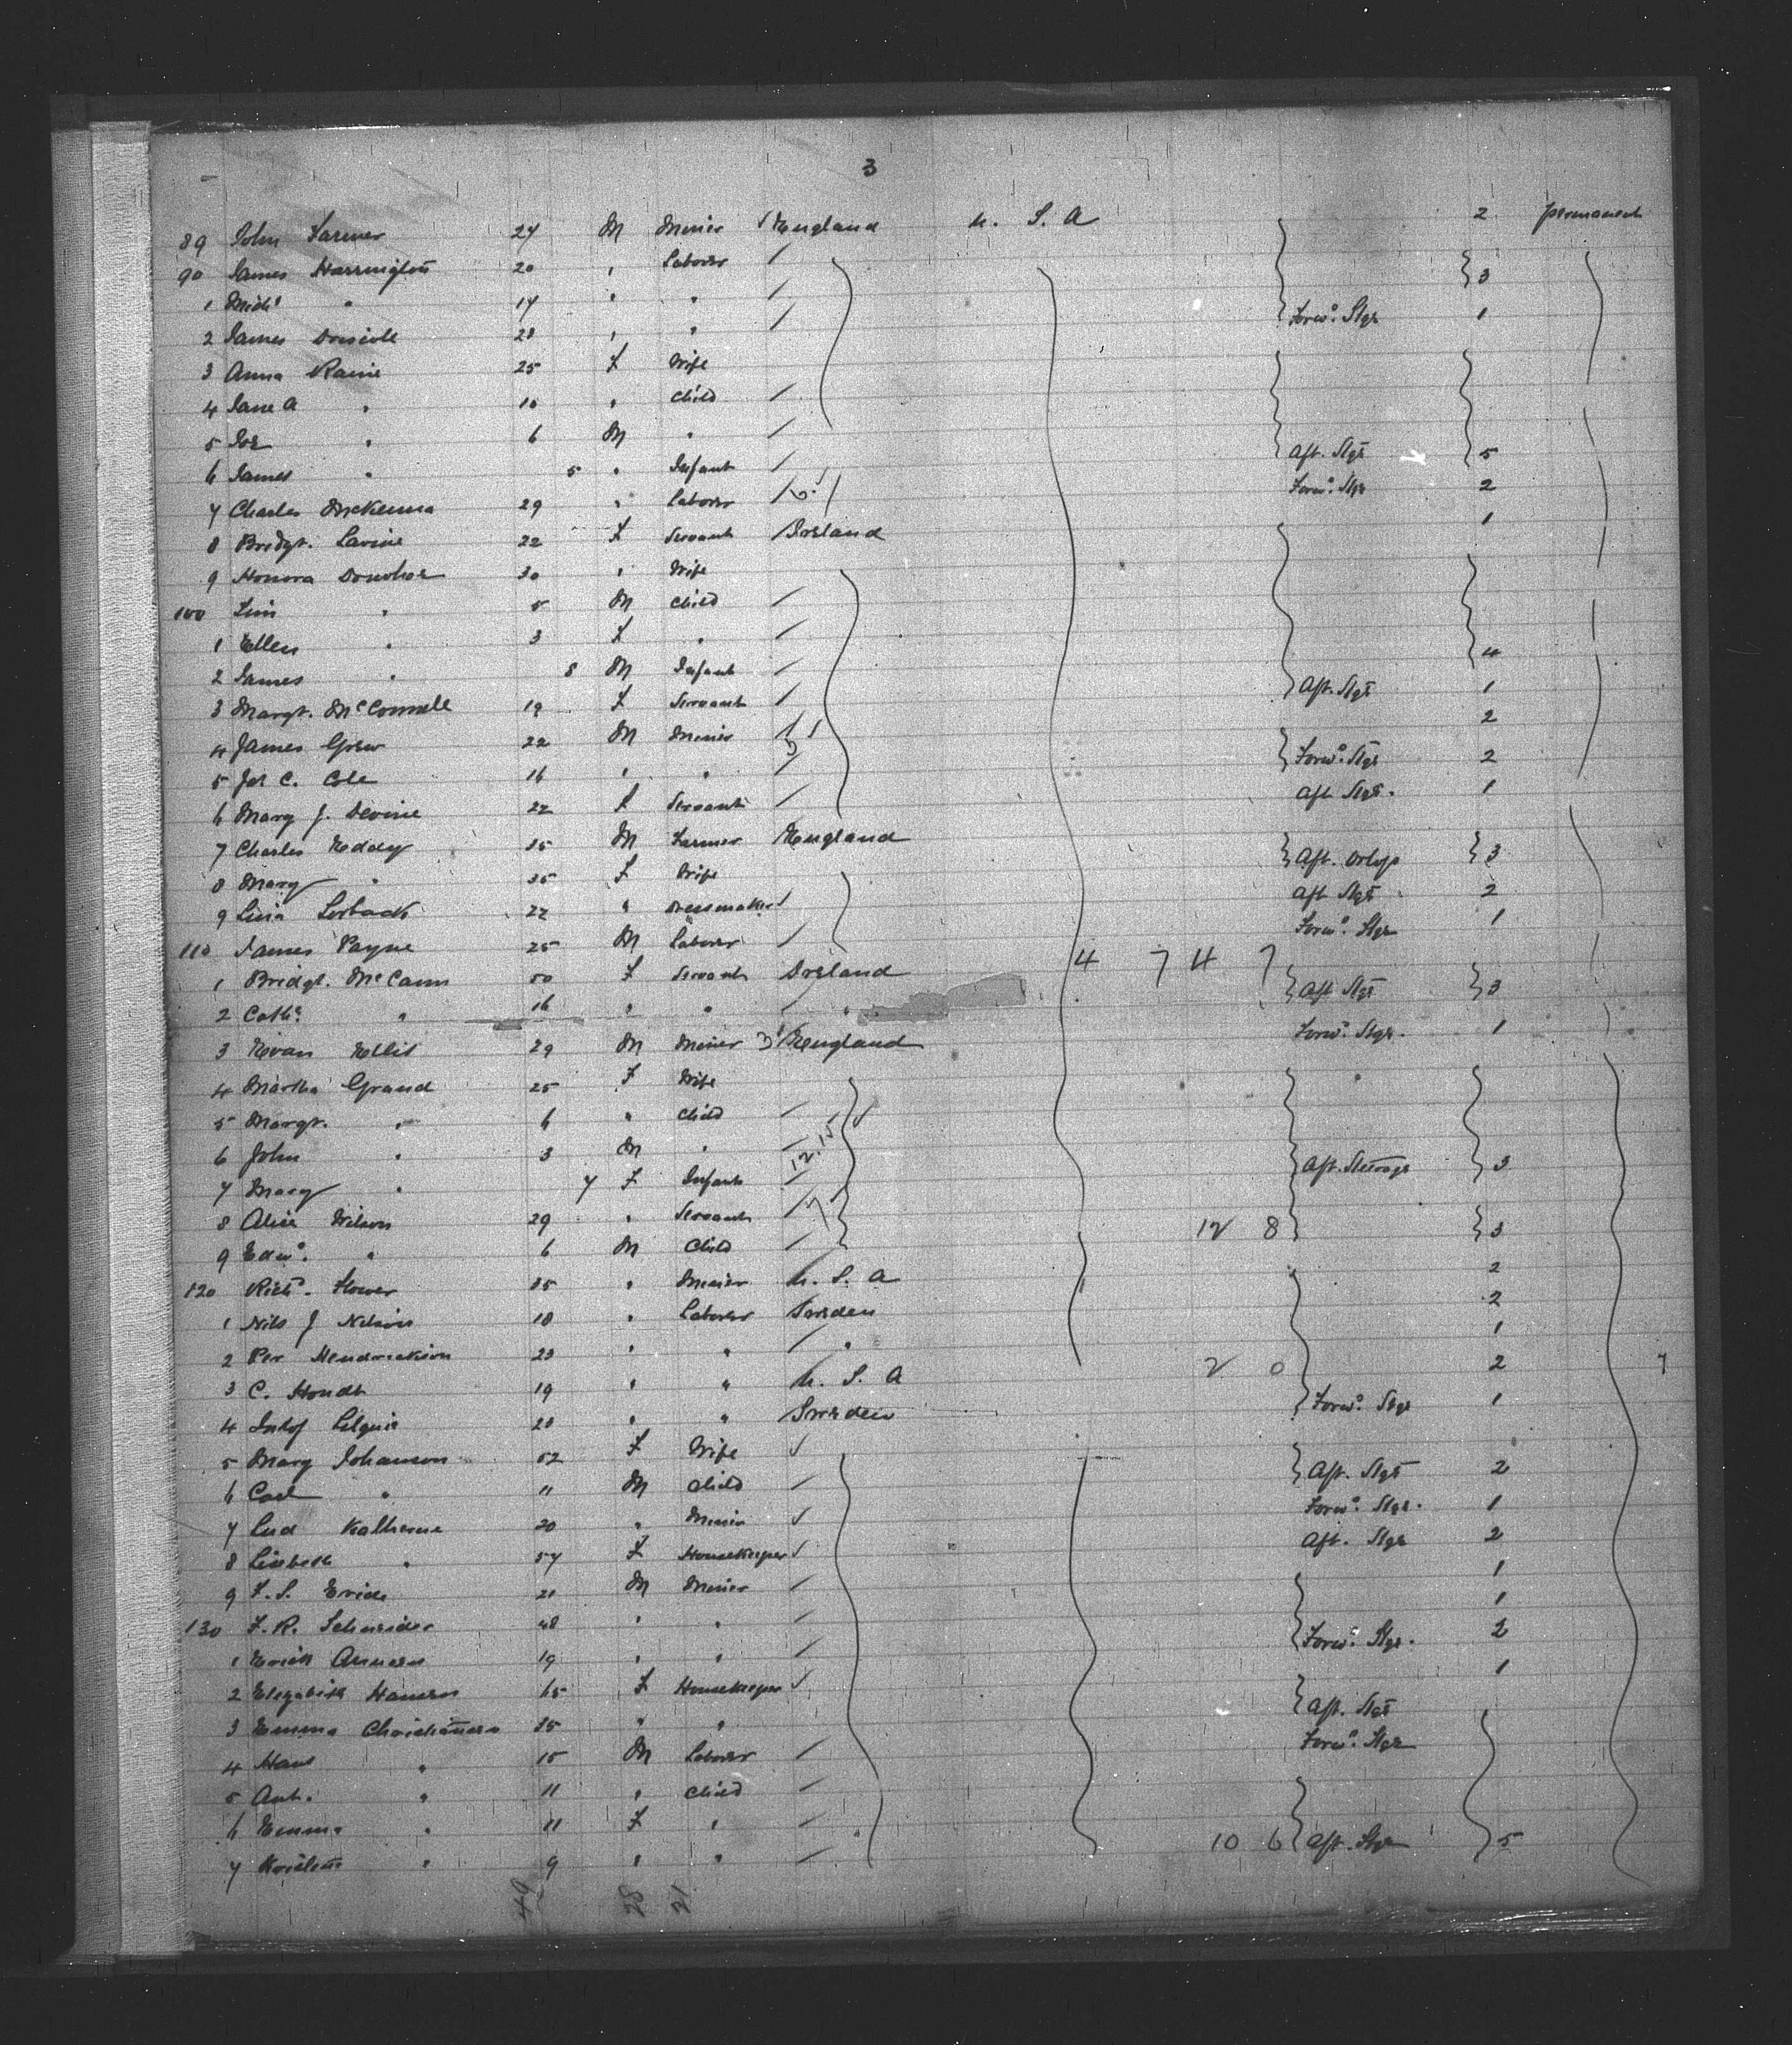 3
89 John Farmer 24 M Miner England U. S. A 2 permanent
90 James Harrington 20 " Laborer 3
1 Michl " 17 " "
2 James Driscole 28 " " Forwd. Stge 1
3 Anna Raine 25 F Wife
4 Jane A " 10 " Child
5 Jos " 6 M "
6 James " 5 " Infant Aft. Stge 5
7 Charles McKenna 29 " Laborer Forwd. Stge 2
8 Bridgt. Lavine 22 F Servant Ireland 1
9 Honora Donohoe 30 " Wife
100 Tim " 5 M Child
1 Ellen " 3 F "
2 James " 8 M Infant 4
3 Margt. McConnele 19 F Servant Aft. Stge 1
4 James Grew 22 M Miner 2
5 Jos C. Cole 16 " " Forwd. Stge 2
6 Mary J. Devine 22 F Servant Aft Stge. 1
7 Charles Eddy 35 M Farmer England
8 Mary " 35 F Wife Aft. Orlop 3
9 Lina 22 " Dressmaker Aft Stge 2
110 James Payne 25 M Laborer Forwd. Stge 1
1 Bridgt. McCann 50 F Servant Ireland 4 7 4 7
2 Cathe " 16 " " " Aft Stge 3
3 Evan Ellis 29 M Miner England Forwd. Stge. 1
4 Martha Grand 25 F Wife
5 Margt. " 6 " Child
6 John " 3 M " 12.15
7 Mary " 7 F Infant Aft. Steerage 3
8 Alice Wilson 29 " Servant
9 Edwd. " 6 M Child 12 8 3
120 Richd. Flower 35 " Miner U. S. A 2
1 Nils J Nelson 18 " Laborer Sweden 2
2 Per Hendrickson 23 " " " 1
3 C. Hondt 19 " " U. S. A 2 0 2
4 20 " " Sweden Forwd. Stge 1
5 Mary Johanson 52 F Wife
6 Carl " 11 M Child Aft. Stge 2
7 Lud Katherine 20 " Miner Forwd. Stge. 1
8 Lisbeth " 57 F Housekeeper Aft. Stge 2
9 F. S. 21 M Miner 1
130 F. R. Schneider 48 " " 1
1 Erick 19 " " Forwd. Stge. 2
2 Elizabeth Hansen 65 F Housekeeper 1
3 Emma Christiansen 35 " " Aft. Stge
4 Hans " 15 M Laborer Forwd. Stge
5 Ant. " 11 " Child
6 Emma " 11 F "
7 " 9 " " 10 6 Aft. Stge 5
49 28 21